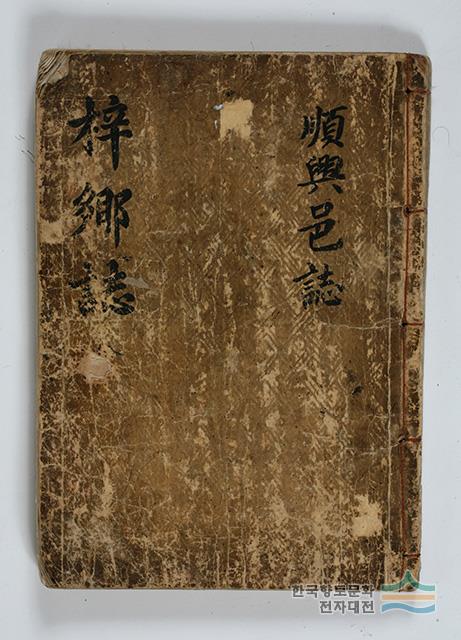 順興邑誌
梓鄉誌
한국향토문화
전자대전